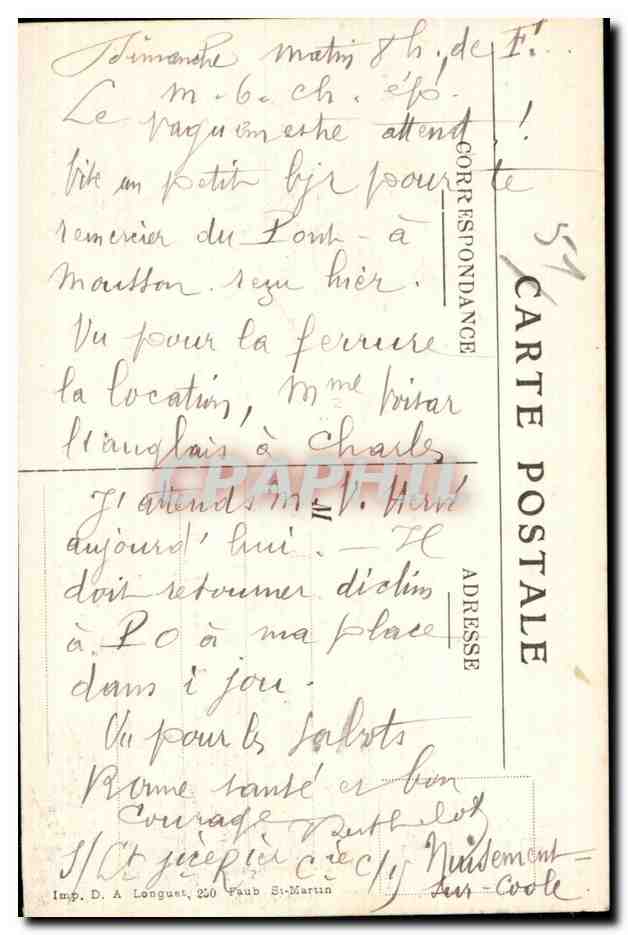 Dimanche matin 8 h., de F!...
m. b. ch. ép.
Le vaguemestre attend!
Vite un petit bjr pour te
remercier du Pont-à
Mousson reçu hier.
Vu pour la ferrure
la location, Mme Voisar
l'anglais à Charles
J'attends M. V. Hervé
aujourd'hui. — Il
doit retourner
à P O à ma place
dans i jou.
Vu pour les sabots
Bonne santé et bon
courage Berthelot
S/Ct
Cie
Nuisement-
sur-Coole
51
CARTE POSTALE
CORRESPONDANCE
ADRESSE
M
Imp. D. A Longuet, 250 Faub St-Martin
CPAPHIL